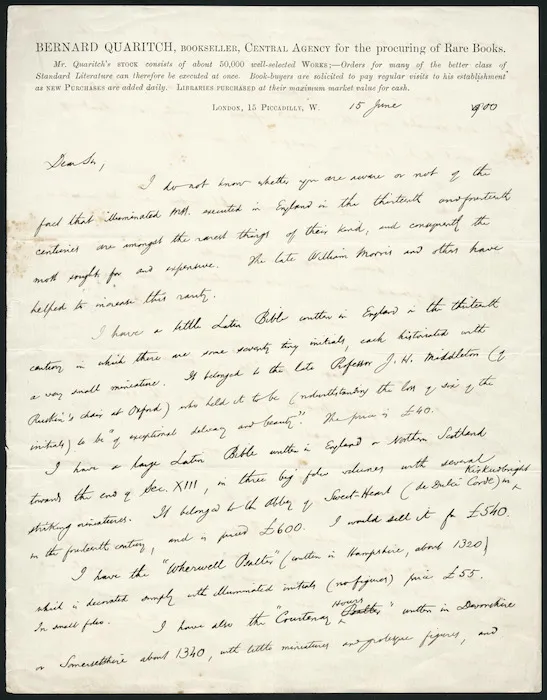 BERNARD QUARITCH, BOOKSELLER, CENTRAL AGENCY for the procuring of Rare Books.
Mr. Quaritch's STOCK consists of about 50,000 well-selected WORKS;—Orders for many of the better class of
Standard Literature can therefore be executed at once. Book-buyers are solicited to pay regular visits to his establishment
as NEW PURCHASES are added daily. LIBRARIES PURCHASED at their maximum market value for cash.
LONDON, 15 PICCADILLY, W. 15 June 900
Dear Sir,
I do not know whether you are aware or not of the
fact that illuminated MSS. executed in England in the thirteenth and fourteenth
centuries are amongst the rarest things of their kind, and consequently the
most sought for and expensive. The late William Morris and others have
helped to increase this rarity.
I have a little Latin Bible written in England in the thirteenth
century in which there are some seventy tiny initials, each historiated with
a very small miniature. It belonged to the late Professor J. H. Middleton (of
Ruskin's chair at Oxford) who held it to be (notwithstanding the loss of six of the
initials) to be "of exceptional delicacy and beauty". The price is £40.
I have a large Latin Bible written in England or Northern Scotland
towards the end of Sec. XIII, in three big folio volumes with several
striking miniatures. It belonged to the Abbey of Sweet-Heart (de Dulci Corde) in Kirkcudbright
in the fourteenth century, and is priced £600. I would sell it for £540.
I have the "Wherwell Psalter" (written in Hampshire, about 1320)
which is decorated simply with illuminated initials (no figures) price £55.
In small folio. I have also the "Courtenay Hours" written in Devonshire
or Somersetshire about 1340, with little miniatures and grotesque figures, and